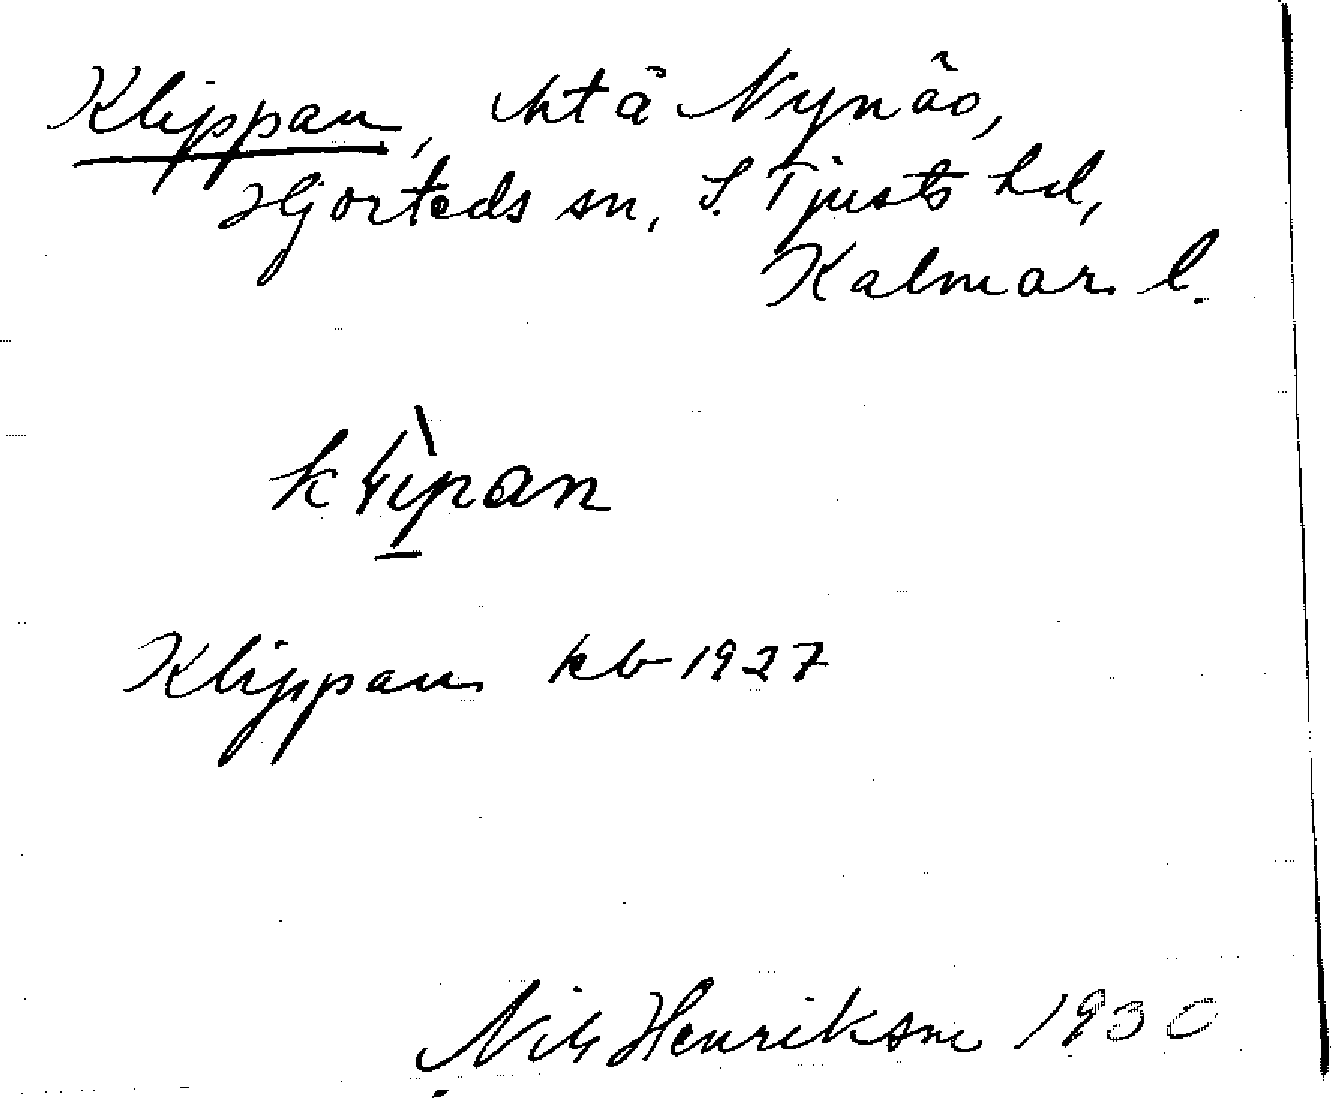 Klippan, utä Nynäs,
Hjorteds sn, S. Tjusts hd,
Kalmar l.
klìpan
Klippan kb 1927
Nils Henriksson 1930